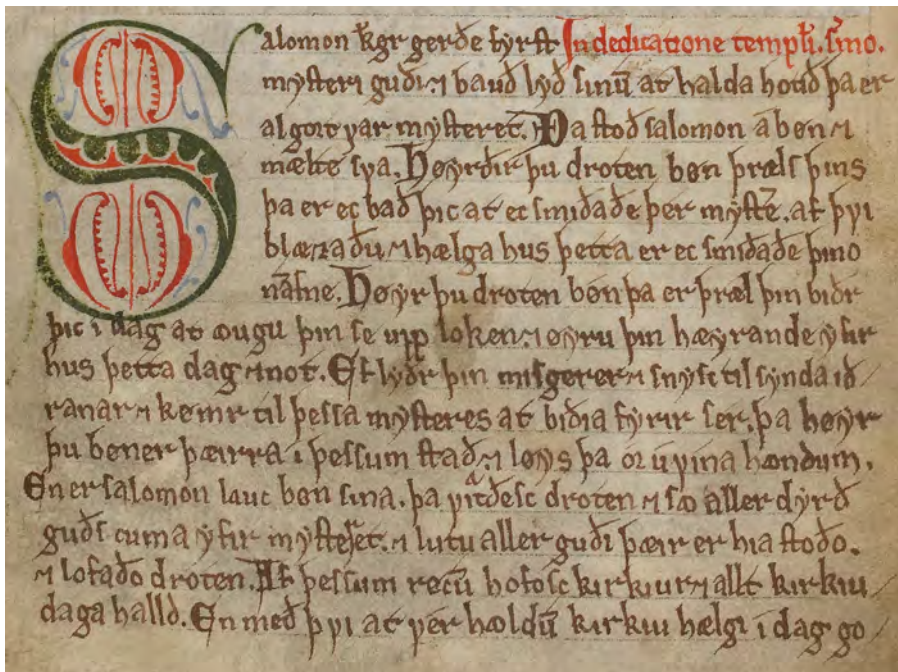 Salomon kgr gerðe fyrſt In dedicatione templi. ſmo.
myſteri guði. ⁊ bauð lyð ſinū at halda hotið þa er
algort ꝩar myſteret. Þa ſtoð ſalomon a bøn ⁊
mælte ſꝩa. Høyrðir þu droten bøn þrælſ þins
þa er ec bað þic at ec ſmiðaðe þer myſte͛. af þꝩi
blæzaðu ⁊ hælga hus þetta er ec ſmiðaðe þino
nafne. Høyr þu droten bøn þa er þræl þin biðr
þic i dag at ꜹugu þin ſe upp loken. ⁊ øyru þin hæyrande yfir
hus þetta dag ⁊ not. Ef lyðr þin miſgerer ⁊ ſnyſc til ſynda ið
ranar ⁊ kømr til þeſſa myſteres at biðia fyrir ſer. þa høyr
þu bøner þæirra i þeſſum ſtað. ⁊ løys þa or uꝩina hændum.
En er ſalomon lauc bøn ſina. þa ꝩitraðeſc droten ⁊ ſꜵ aller dyrð
guðſ cuma yfir myſteret. ⁊ lutu aller guði þæir er hia ſtoðo.
⁊ lofaðo droten. Af þeſſum røcū hofoſc kirkiur ⁊ allt kirkiu
daga halld. En með þꝩi at ꝩer hældū kirkiu hælgi i dag go